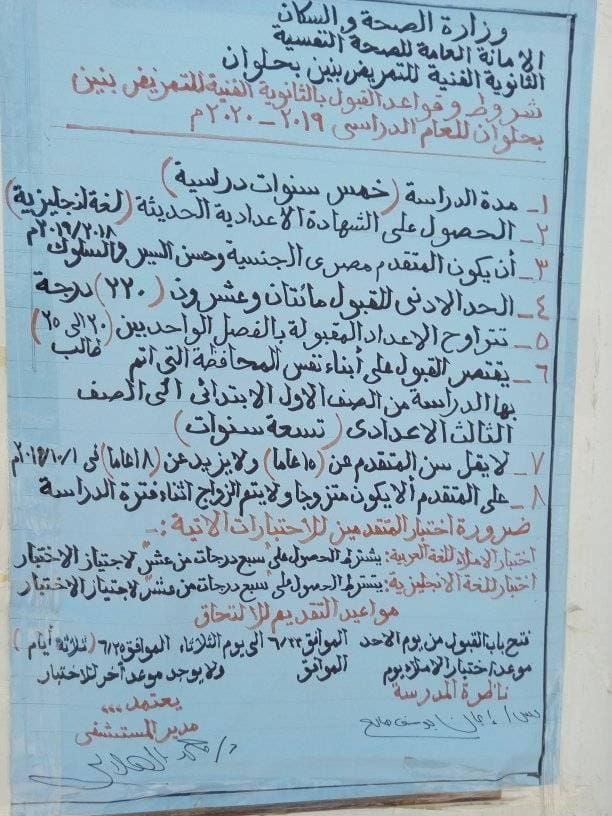 وزارة الصحة والسكان
الامانة العامة للصحة النفسية
الثانوية الفنية للتمريض بنين بحلوان
شروط وقواعد القبول بالثانوية الفنية للتمريض بنين
بحلوان للعام الدراسى ٢٠١٩ - ٢٠٢٠م
١- مدة الدراسة (خمس سنوات دراسية)
٢- الحصول على الشهادة الاعدادية الحديثة (لغة انجليزية)
٢٠١٩/٢٠١٨م
٣- أن يكون المتقدم مصرى الجنسية وحسن السير والسلوك
٤- الحد الادنى للقبول مائتان وعشرون (٢٢٠) درجة
٥- تتراوح الاعداد المقبولة بالفصل الواحد بين (٢٠ الى ٢٥)
طالب
٦- يقتصر القبول على أبناء نفس المحافظة التى اتم
بها الدراسة من الصف الاول الابتدائى الى الصف
الثالث الاعدادى (تسعة سنوات)
٧- لا يقل سن المتقدم عن (١٥عاما) ولا يزيد عن (١٨عاما) فى ٢٠١٩/١٠/١م
٨- على المتقدم ألا يكون متزوجا ولا يتم الزواج اثناء فترة الدراسة
ضرورة أختبار المتقدمين للاختبارات الاتية :-
اختبار الاملاء للغة العربية: يشترط الحصول على "سبع درجات من عشر" لاجتياز الاختبار
اختبار للغة الانجليزية: يشترط الحصول على "سبع درجات من عشر" لاجتياز الاختبار
مواعيد التقديم للالتحاق
فتح باب القبول من يوم الاحد الموافق ٦/٢٣ الى يوم الثلاثاء الموافق ٦/٢٥ (ثلاثة أيام)
موعد اختبار الاملاء يوم الموافق ولا يوجد موعد أخر للاختبار
ناظرة المدرسة
يعتمد ,,,
مدير المستشفى